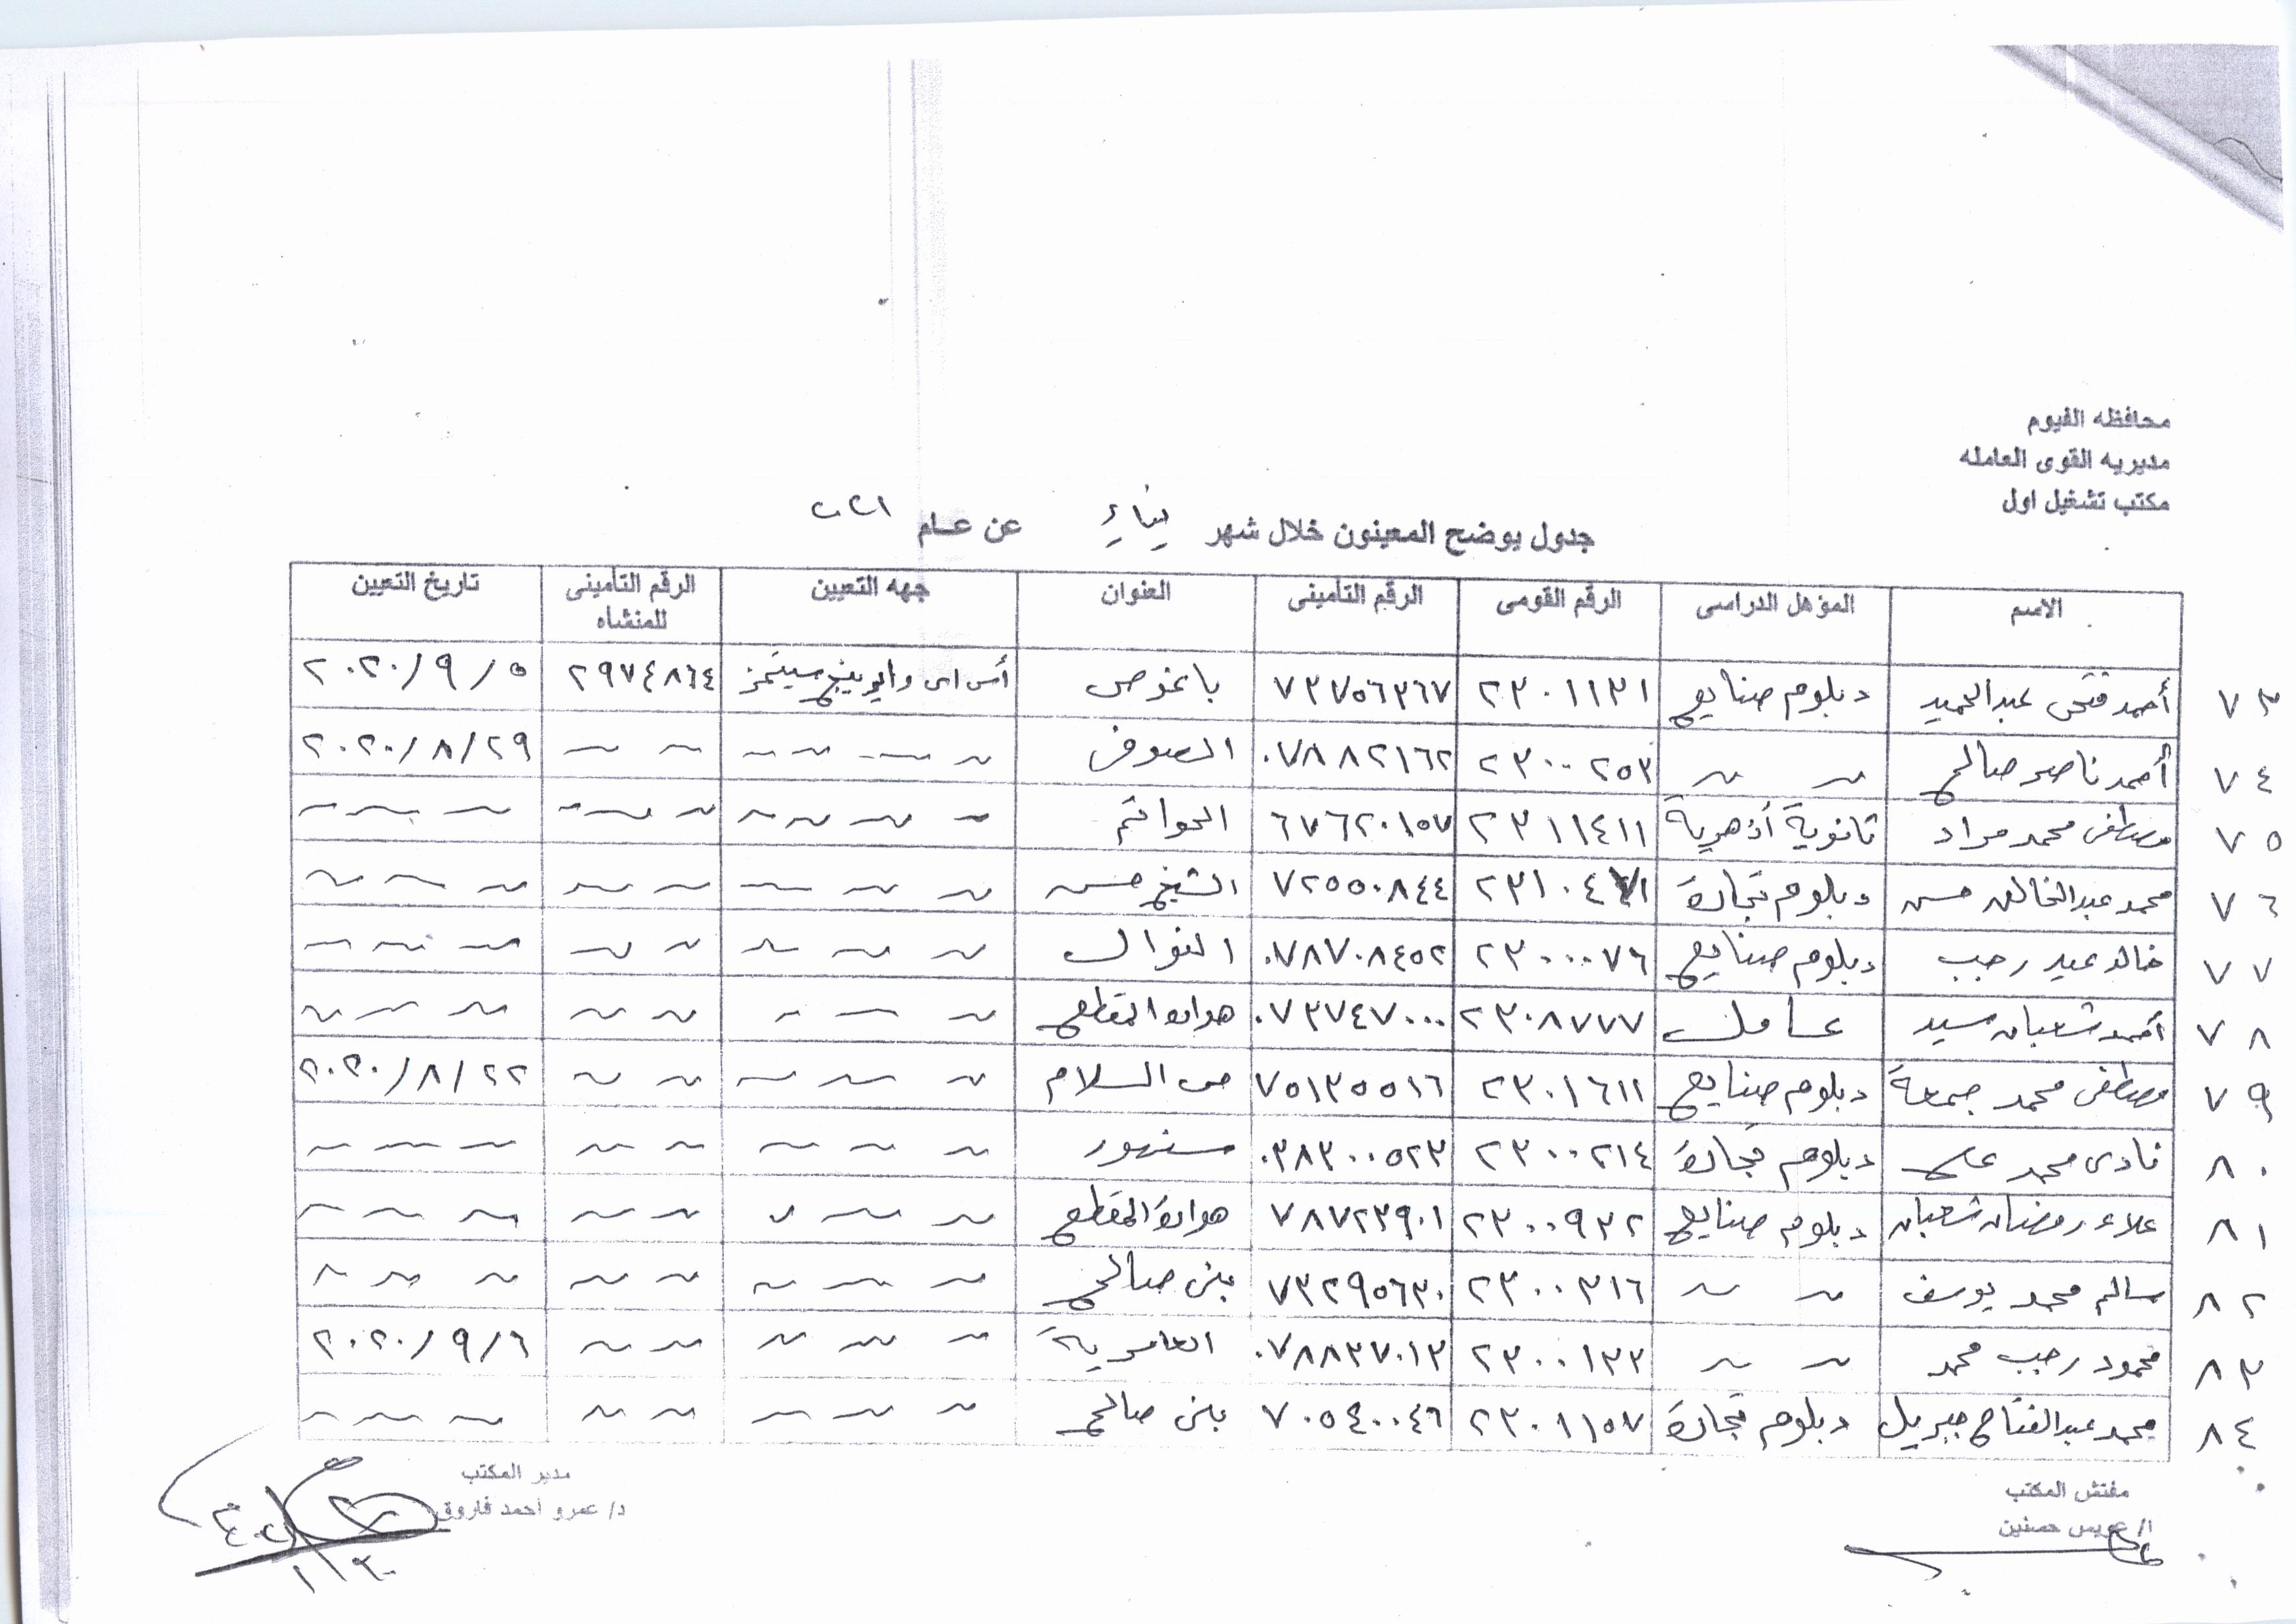 محافظه الفيوم
مديريه القوى العامله
مكتب تشغيل اول
جدول يوضح المعينون خلال شهر يناير عن عام ٢٠٢١
الاسم المؤهل الدراسى الرقم القومى الرقم التأمينى العنوان جهه التعيين الرقم التأمينى للمنشاه تاريخ التعيين
٧٣ أحمد فتحى عبدالحميد دبلوم صنايع ٢٣٠١١٣١ ٧٣٧٥٦٣٦٧ باغوص أس اى وايرينج سيتمز ٢٩٧٤٨٦٤ ٢٠٢٠/٩/٥
٧٤ أحمد ناصر صالح ~ ~ ٢٣٠٠٢٥٣ ٠٧٨٨٢١٦٢ الصوفى ~ ~ ~ ~ ~ ~ ٢٠٢٠/٨/٢٩
٧٥ مصطفى محمد مراد ثانوية أزهرية ٢٣١١٤١١ ٦٧٦٢٠١٥٧ الحواتم ~ ~ ~ ~ ~ ~ ~ ~ ~ ~
٧٦ محمد عبدالخالق حسن دبلوم تجارة ٢٣١٠٤٧١ ٧٢٥٥٠٨٤٤ الشيخ حسن ~ ~ ~ ~ ~ ~ ~ ~
٧٧ خالد عيد رجب دبلوم صنايع ٢٣٠٠٠٧٦ ٠٧٨٧٠٨٤٥٢ النوال ~ ~ ~ ~ ~ ~ ~ ~
٧٨ أحمد شعبان سيد عامل ٢٣٠٨٧٧٧ ٠٧٣٧٤٧٠٠٠ هوارة المقطع ~ ~ ~ ~ ~ ~ ~ ~
٧٩ مصطفى محمد جمعة دبلوم صنايع ٢٣٠١٦١١ ٧٥١٣٥٥١٦ حى السلام ~ ~ ~ ~ ~ ٢٠٢٠/٨/٢٢
٨٠ نادى محمد على دبلوم تجارة ٢٣٠٠٢١٤ ٠٣٨٣٠٠٥٢٣ سنهور ~ ~ ~ ~ ~ ~ ~ ~
٨١ علاء رمضان شعبان دبلوم صنايع ٢٣٠٠٩٣٢ ٧٨٧٢٣٩٠١ هوارة المقطع ~ ~ ~ ~ ~ ~ ~ ~
٨٢ سالم محمد يوسف ~ ~ ٢٣٠٠٣١٦ ٧٣٢٩٥٦٣٠ بنى صالح ~ ~ ~ ~ ~ ~ ~ ~
٨٣ محمود رجب محمد ~ ~ ٢٣٠٠١٣٣ ٠٧٨٨٣٧٠١٣ العامرية ~ ~ ~ ~ ~ ٢٠٢٠/٩/٦
٨٤ محمد عبدالفتاح جبريل دبلوم تجارة ٢٣٠١١٥٧ ٧٠٥٤٠٠٤٦ بنى صالح ~ ~ ~ ~ ~ ~ ~ ~
مفتش المكتب مدير المكتب
ا/ عويس حسنين د/ عمرو احمد فاروق